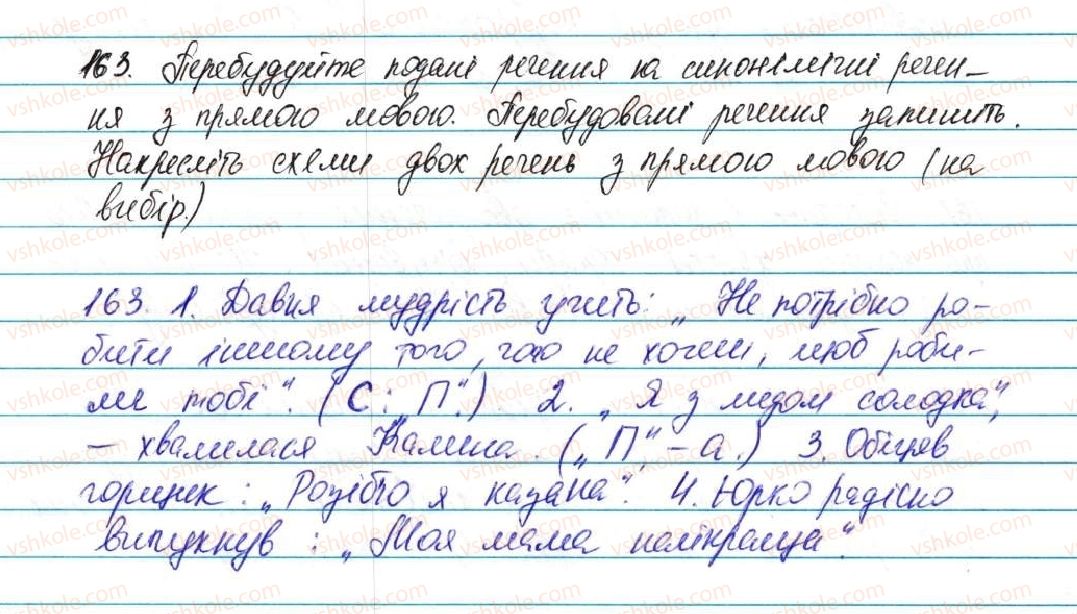 163. Перебудуйте подані речення на синонімічні речен-
ня з прямою мовою. Перебудовані речення запишіть.
Накресліть схеми двох речень з прямою мовою (на
вибір.)
163. 1. Давня мудрість учить: „Не потрібно ро-
бити іншому того, чого не хочеш, щоб роби-
ли тобі". (С: „П".) 2. „Я з медом солодка",
- хвалилася Калина. („П", - а.) 3. Обіцяв
горщик: „Розіб'ю я казана". 4. Юрко радісно
випукнув: „Моя мама найкраща".